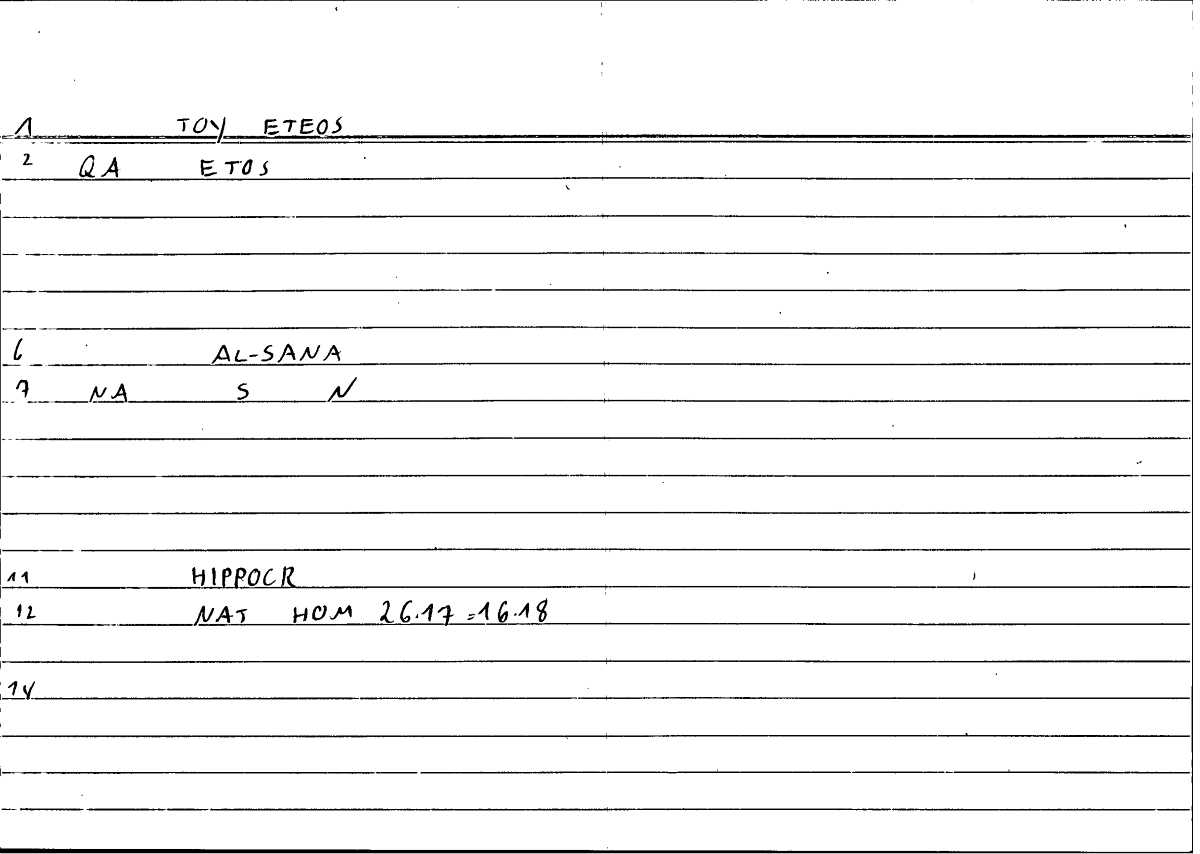 1 TOY ETEOS
2 QA ETOS
6 AL-SANA
7 NA S N
11 HIPPOCR
12 NAT HOM 26.17=16.18
14